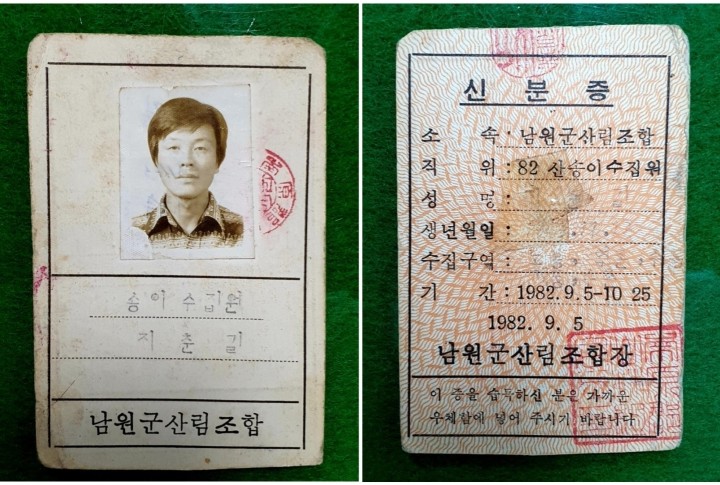 송이수집원
지춘길
남원군산림조합
신분증
소 속 : 남원군산림조합
직 위 : 82 산송이수집원
성 명 :
생년월일 :
수집구역 :
기 간 : 1982.9.5-10 25
1982. 9. 5
남원군산림조합장
이 증을 습득하신 분은 가까운
우체함에 넣어 주시기 바랍니다